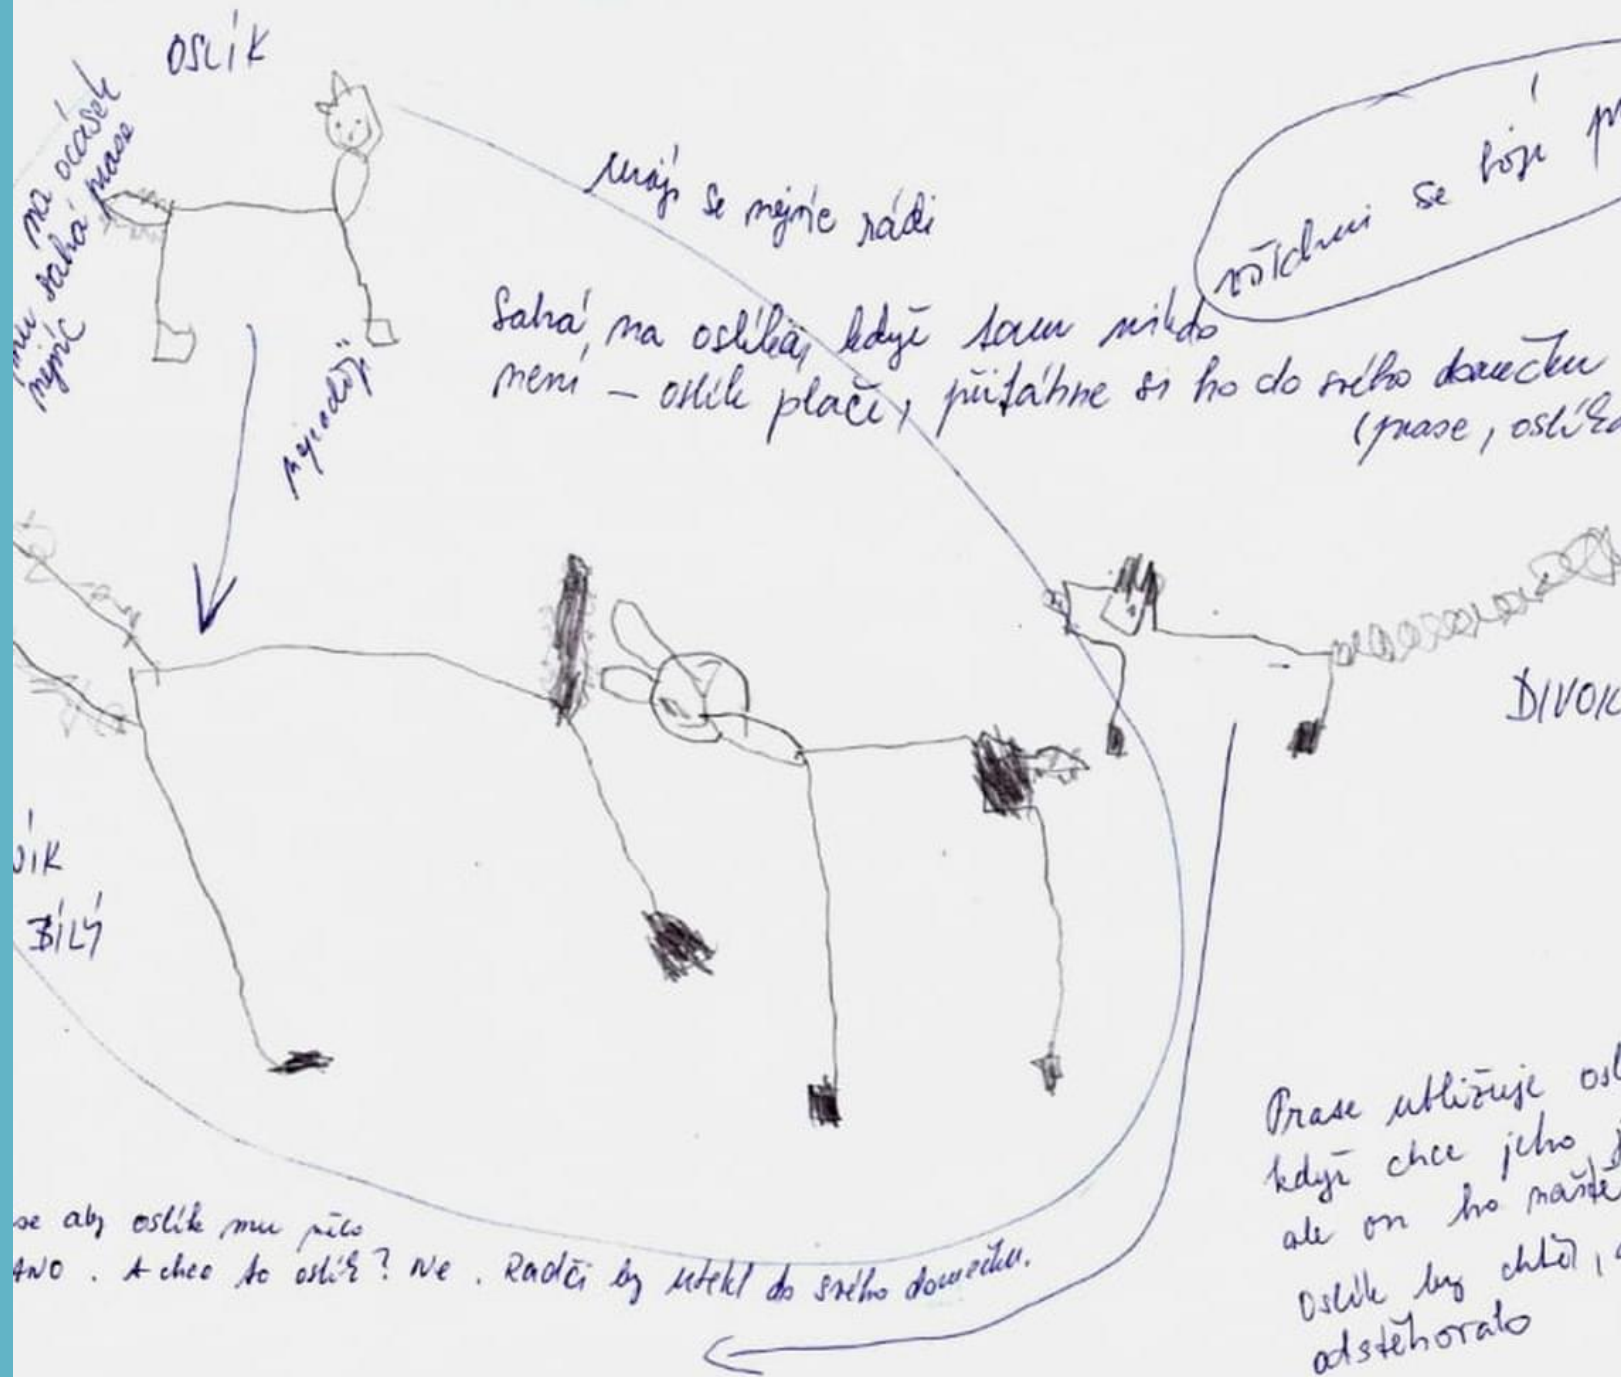 OSLÍK
na ocásek
mu sahá prase
nejvíc
mají se nejvíc rádi
všichni se bojí
Sahá na oslíka, když tam nikdo
není – oslík pláče, přitáhne si ho do svého domečku
(prase, oslíka
nejraději
DIVOK
NÍK
BÍLÝ
se aby oslík mu něco
ANO. A chce to oslík? Ne. Radči by utekl do svého domečku.
Prase ubližuje osl
když chce jeho
ale on ho naště
Oslík by chtěl,
odstěhovalo